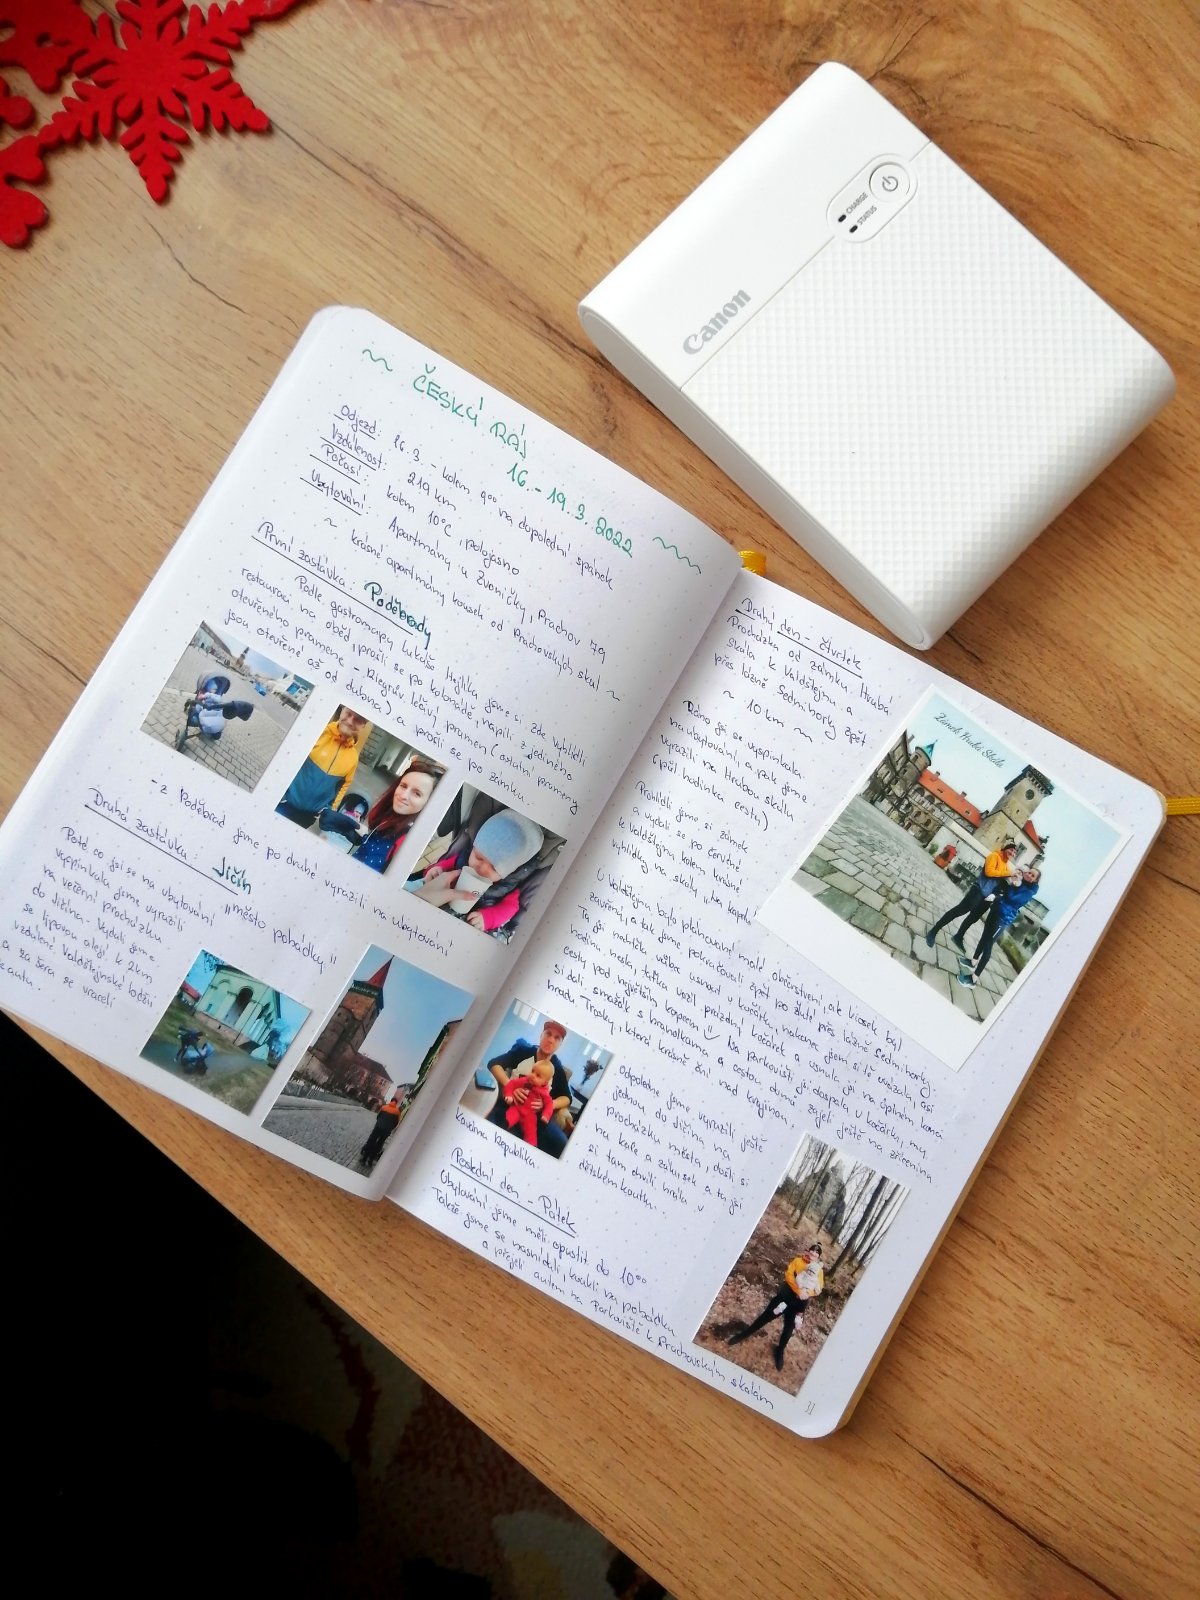 Canon
CHARGE
STATUS
~ ČESKÝ RÁJ
16. - 19. 3. 2022 ~
Odjezd: 16. 3. - kolem 9⁰⁰ na dopolední spánek
Vzdálenost: 219 km
Počasí: kolem 10°C, polojasno
Ubytování: Apartmány u Zvoničky, Prachov 79
~ krásné apartmány kousek od Prachovských skal ~
První zastávka: Poděbrady
Podle gastromapy Lukáše Hejlíka jsme si zde vyhlídli
restauraci na oběd, prošli se po kolonádě, napili z jediného
otevřeného pramene - Riegrův léčivý pramen (ostatní prameny
jsou otevřené až od dubna) a prošli se po zámku.
- z Poděbrad jsme po druhé vyrazili na ubytování
Druhá zastávka: Jičín "město pohádky"
Poté co jsi se na ubytování
vyspinkala jsme vyrazili
na večerní procházku
do Jičína. Vydali jsme
se lipovou alejí k 2km
vzdálené Valdštejnské lodžii
a za šera se vraceli
autu.
Druhý den - čtvrtek
Procházka od zámku Hrubá
skála k Valdštejnu a
přes lázně Sedmihorky zpět
~ 10 km ~
Ráno jsi se vyspinkala
na ubytování, a pak jsme
vyrazili na Hrubou skálu
(půl hodinka cesty)
Prohlídli jsme si zámek
a vydali se po červené
k Valdštejnu kolem krásné
vyhlídky na skály "Na kapele
U Valdštejna bylo plánované malé občerstvení, ale kiosek byl
zavřený, a tak jsme pokračovali zpět po žluté přes lázně Sedmihorky.
Ta jsi nechtěla vůbec usnout v kočárku, nakonec jsem si tě uvázala, asi
hodinu nesla, taťka vozil prázdný kočárek a usnula jsi na úplném konci
cesty pod největším kopcem. Na parkovišti jsi dospala v kočárku, my
si dali smažák s hranolkama a cestou domů zajeli ještě na zříceninu
hradu Trosky, která krásně ční nad krajinou.
Odpoledne jsme vyrazili ještě
jednou do Jičína na
procházku města, došli si
na kafe a zákusek a ty jsi
si tam chvíli hrála v
dětském koutku.
Kavárna Republika.
Poslední den - Pátek
Ubytování jsme měli opustit do 10⁰⁰
Takže jsme se nasnídali, koukli na pohádku
a přejeli autem na Parkoviště k Prachovským skalám
Zámek Hrubá Skála
31